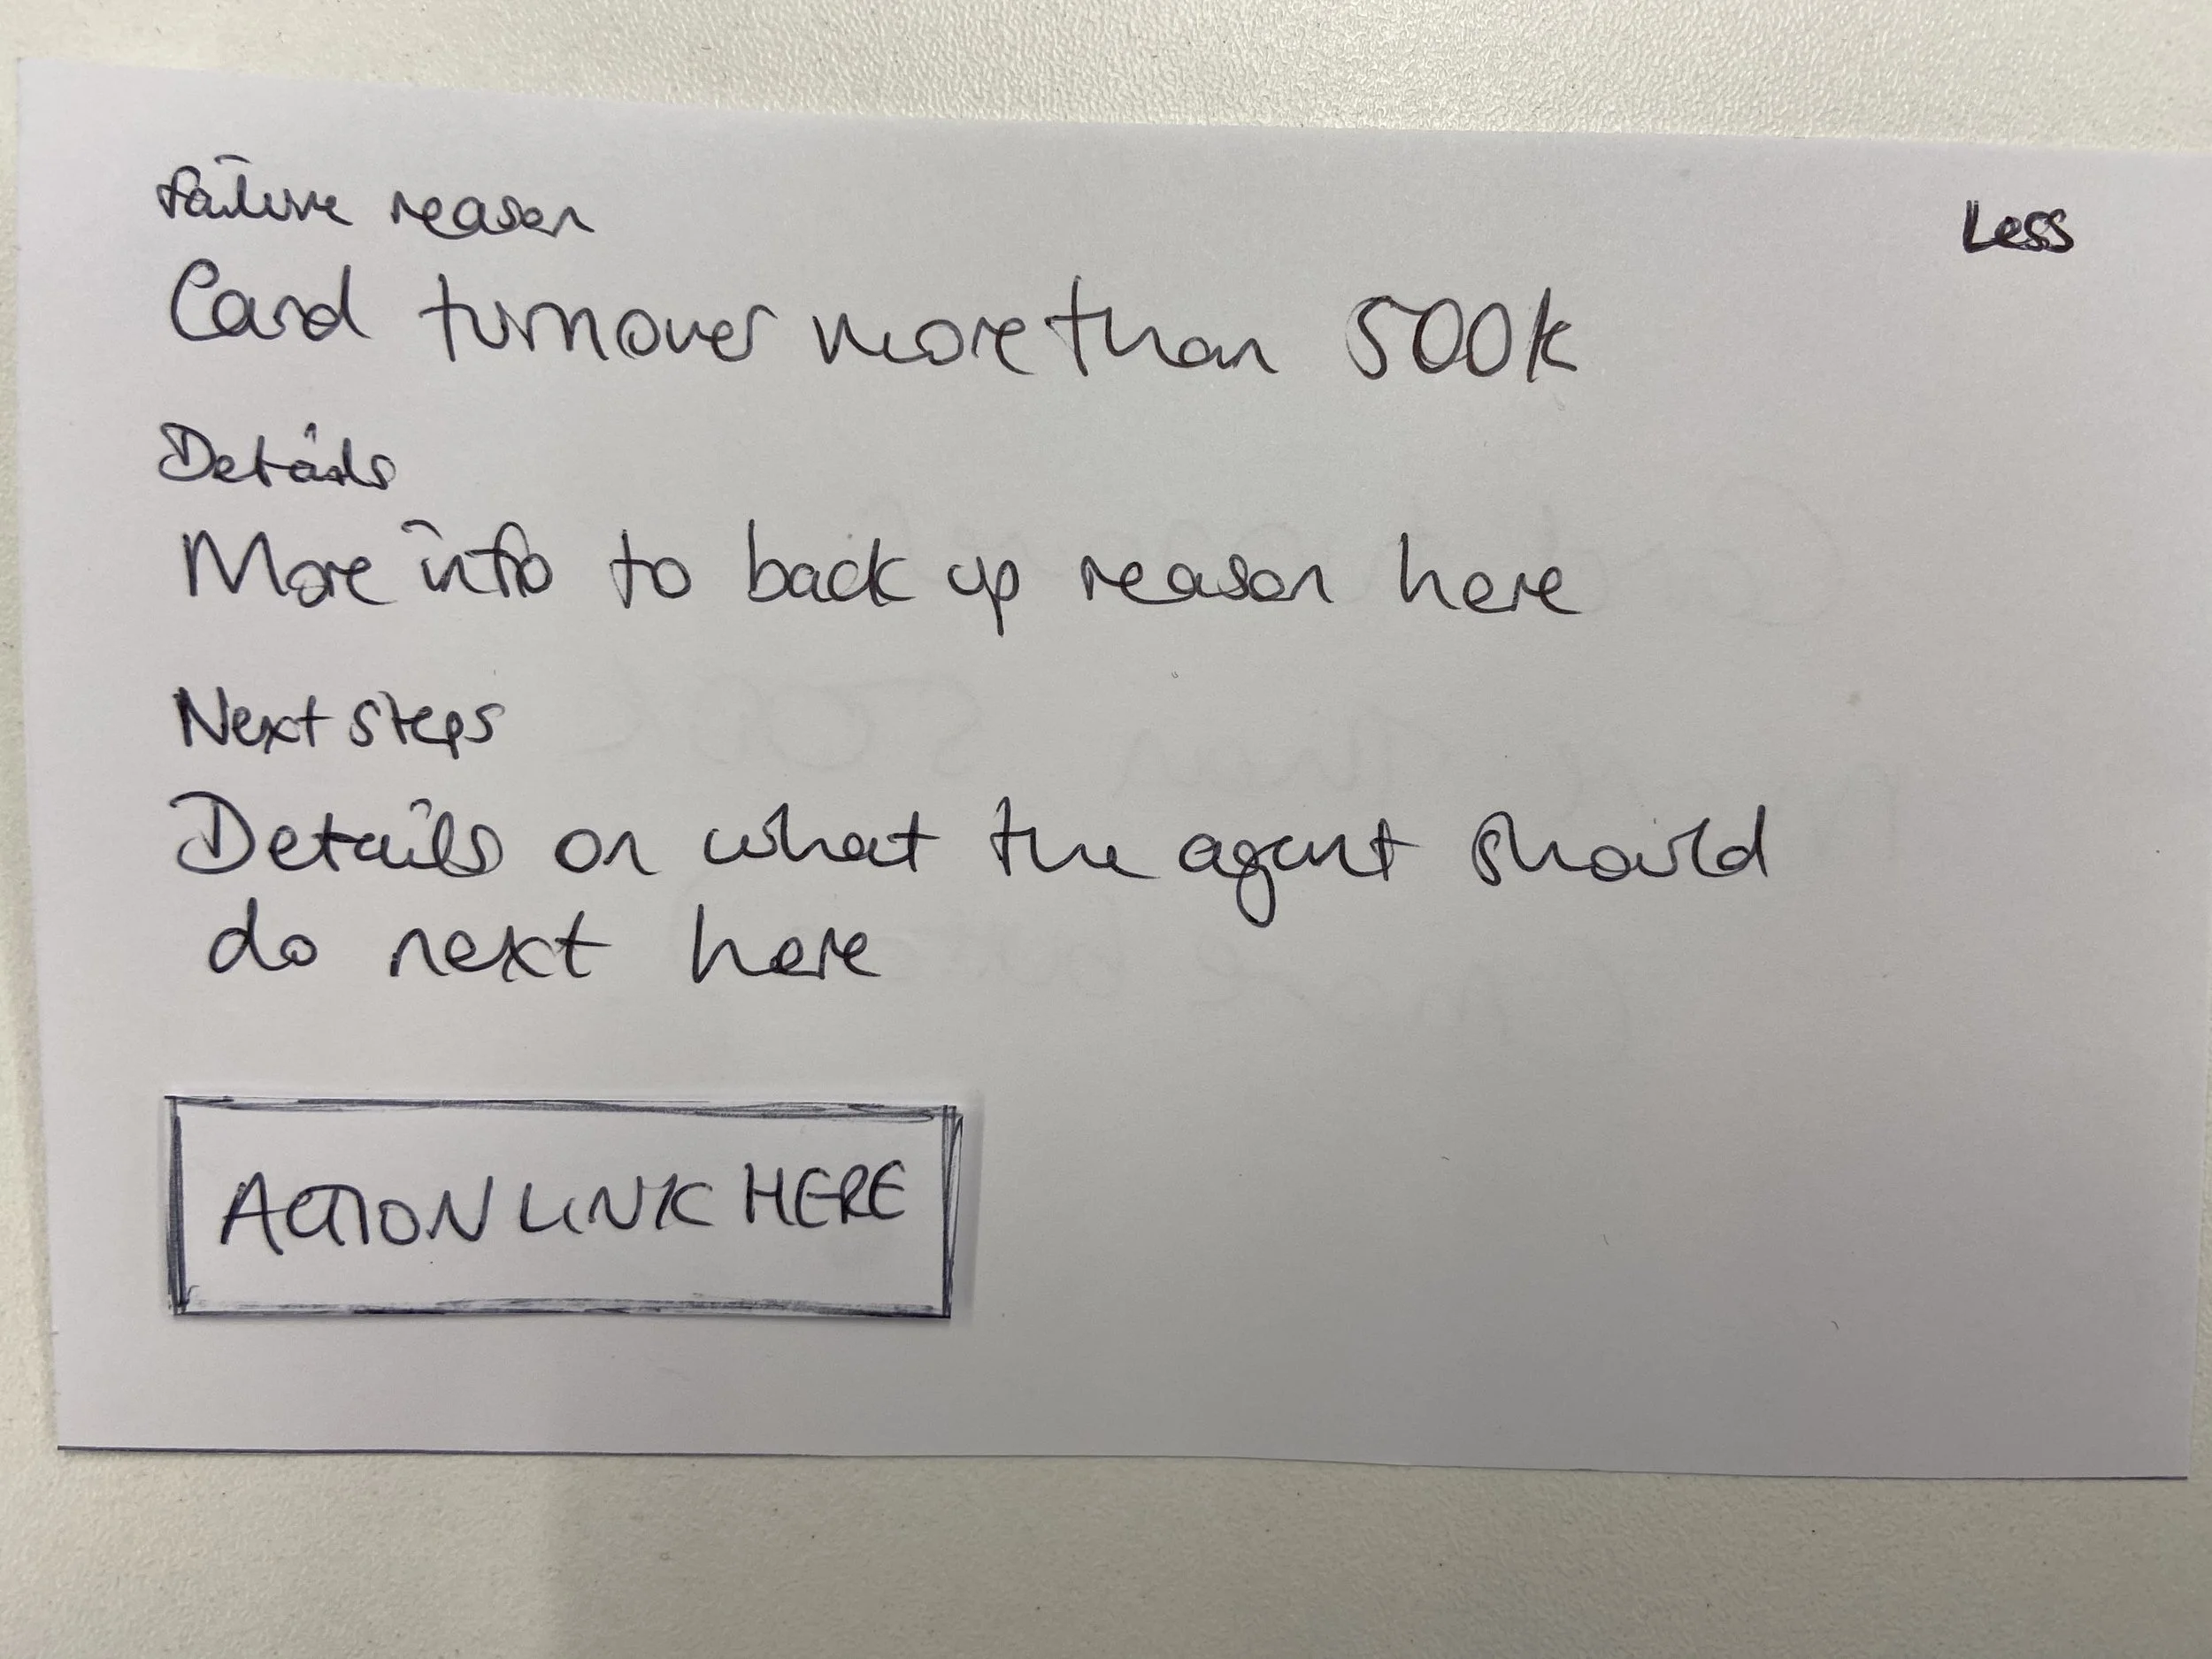 Failure reason
Less
Card turnover more than 500k
Details
More info to back up reason here
Next steps
Details on what the agent should
do next here
ACTION LINK HERE